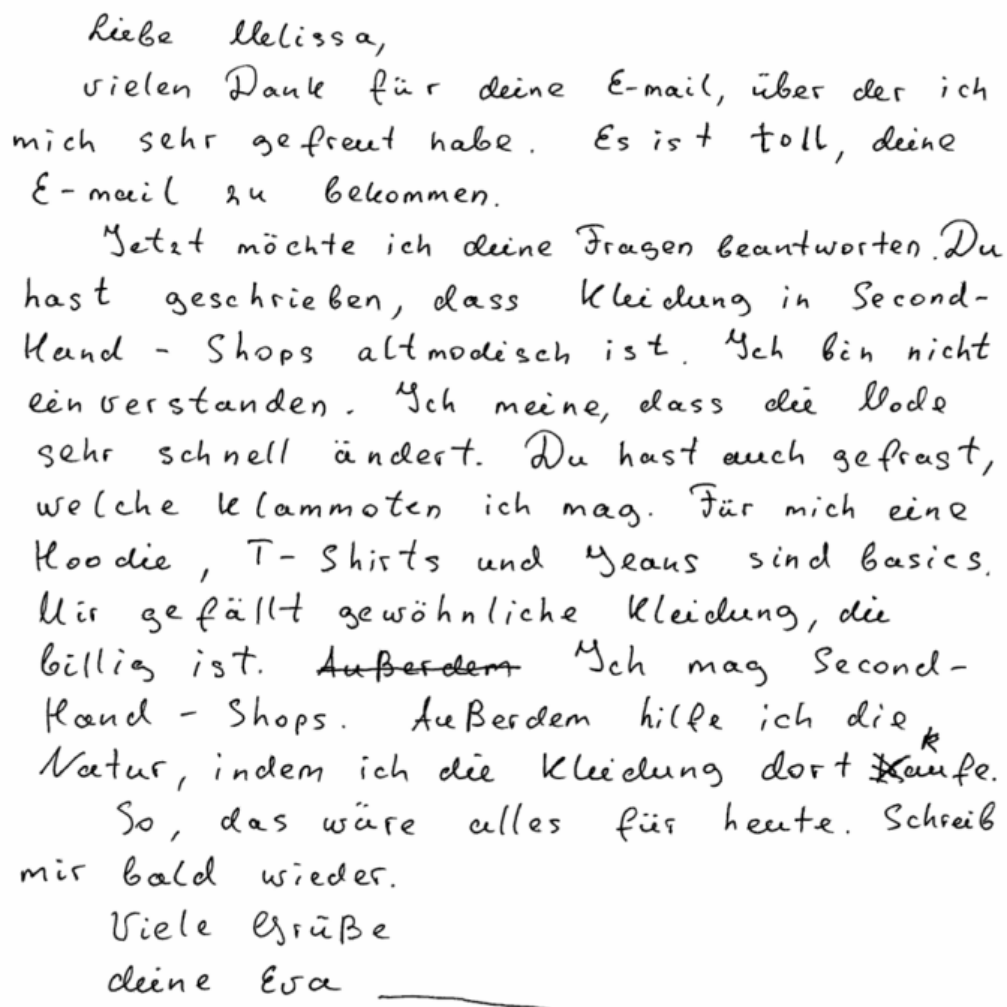 Liebe Melissa,
vielen Dank für deine E-mail, über der ich
mich sehr gefreut habe. Es ist toll, deine
E-mail zu bekommen.
Jetzt möchte ich deine Fragen beantworten. Du
hast geschrieben, dass Kleidung in Second-
Hand - Shops altmodisch ist. Ich bin nicht
einverstanden. Ich meine, dass die Mode
sehr schnell ändert. Du hast auch gefragt,
welche Klammoten ich mag. Für mich eine
Hoodie, T-Shirts und Jeans sind basics.
Mir gefällt gewöhnliche Kleidung, die
billig ist. Außerdem Ich mag Second-
Hand - Shops. Außerdem hilfe ich die
Natur, indem ich die Kleidung dort kaufe.
So, das wäre alles für heute. Schreib
mir bald wieder.
Viele Grüße
deine Eva